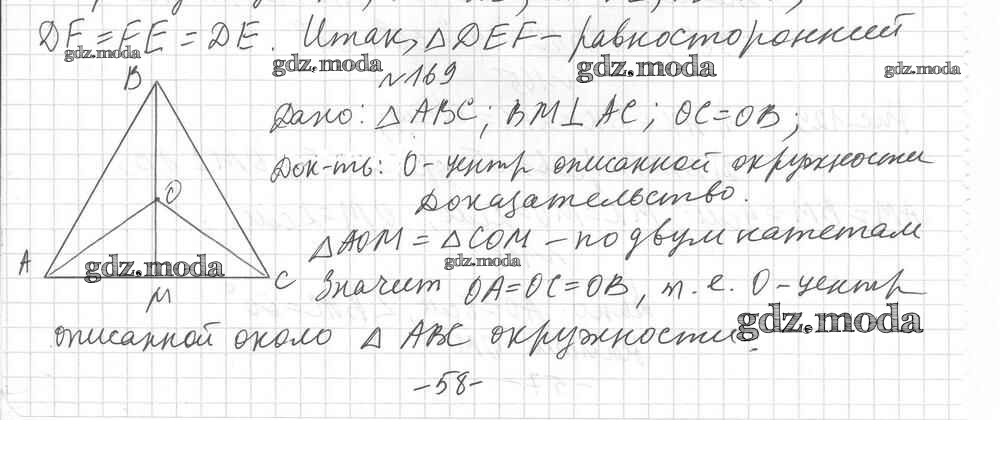 DF = FE = DE. Итак, △ DEF – равносторонний
gdz.moda gdz.moda gdz.moda gdz.moda
№169
B
Дано: △ ABC; BM⊥AC; OC=OB;
Док-ть: O - центр описанной окружности
Доказательство.
O
△AOM = △COM – по двум катетам
A gdz.moda C gdz.moda
M
Значит OA=OC=OB, т. е. O - центр
gdz.moda
описанной около △ ABC окружности.
-58-